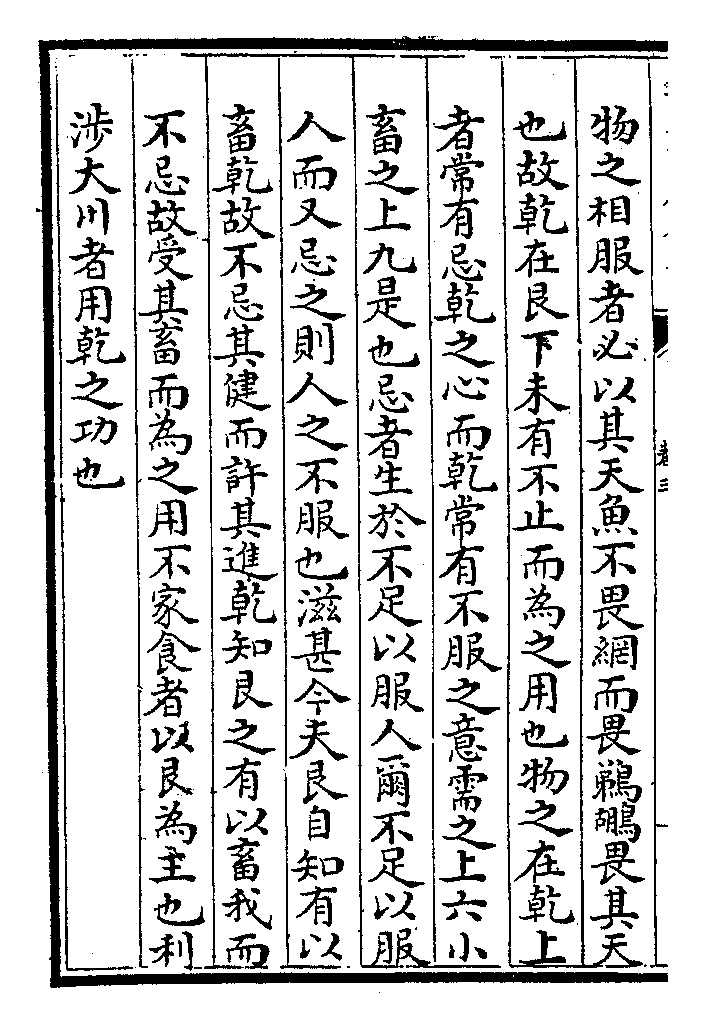 物之相服者必以其天魚不畏網而畏鵜鶘畏其天
也故乾在艮下未有不止而為之用也物之在乾上
者常有忌乾之心而乾常有不服之意需之上六小
畜之上九是也忌者生於不足以服人爾不足以服
人而又忌之則人之不服也滋甚今夫艮自知有以
畜乾故不忌其健而許其進乾知艮之有以畜我而
不忌故受其畜而為之用不家食者以艮為主也利
涉大川者用乾之功也